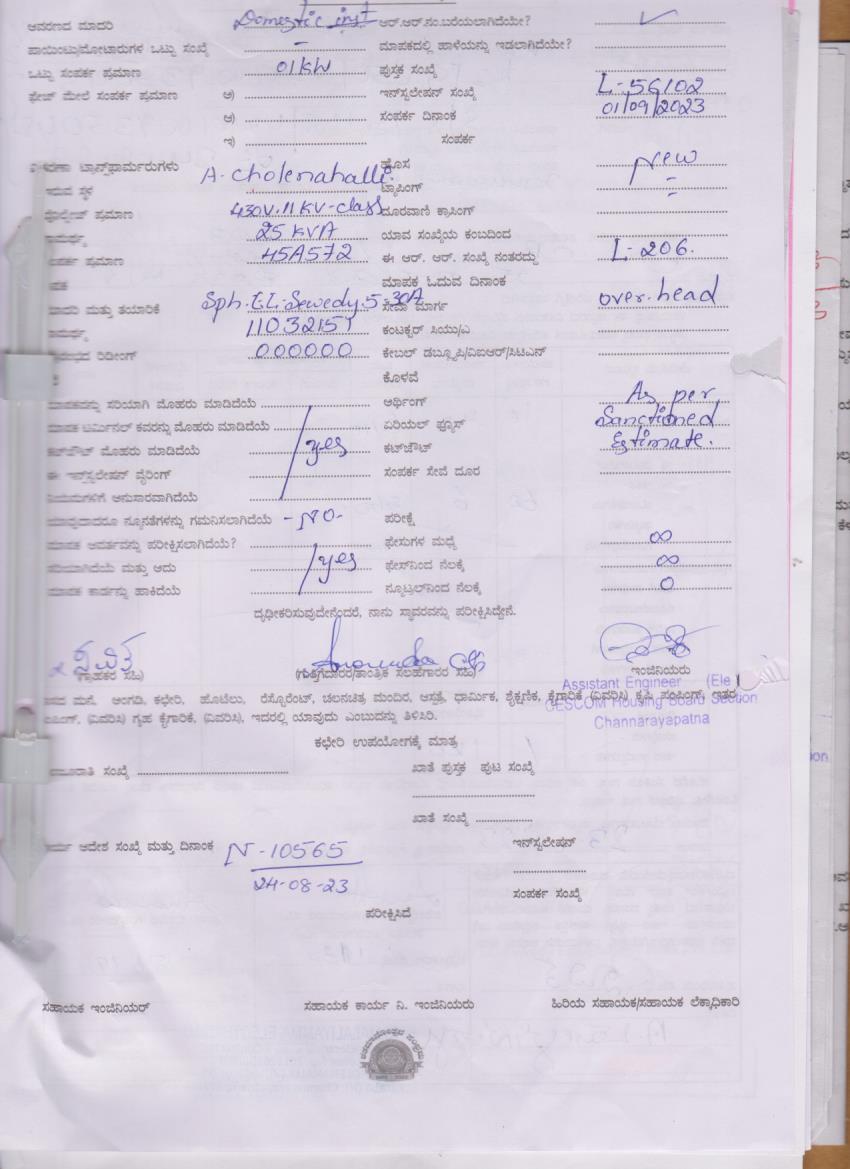 ಆವರಣದ ಮಾದರಿ Domestic inst ಆರ್.ಆರ್.ನಂ.ಬರೆಯಲಾಗಿದೆಯೇ? ✓
ಪಾಯಿಂಟು/ಮೋಟಾರುಗಳ ಒಟ್ಟು ಸಂಖ್ಯೆ - ಮಾಪಕದಲ್ಲಿ ಹಾಳೆಯನ್ನು ಇಡಲಾಗಿದೆಯೇ?
ಒಟ್ಟು ಸಂಪರ್ಕ ಪ್ರಮಾಣ 01KW ಪುಸ್ತಕ ಸಂಖ್ಯೆ
ಫೇಜ್ ಮೇಲೆ ಸಂಪರ್ಕ ಪ್ರಮಾಣ ಅ) ಇನ್‌ಸ್ಟಲೇಷನ್ ಸಂಖ್ಯೆ L-56102
ಆ) ಸಂಪರ್ಕ ದಿನಾಂಕ 01/09/2023
ಇ) ಸಂಪರ್ಕ
ಟ್ರಾನ್ಸ್‌ಫಾರ್ಮರುಗಳು A-cholenahalli. ಹೊಸ New
ಇರುವ ಸ್ಥಳ ಟ್ಯಾಪಿಂಗ್ =
ವೋಲ್ಟೇಜ್ ಪ್ರಮಾಣ 430V.11KV-class ದೂರವಾಣಿ ಕ್ರಾಸಿಂಗ್
25 KVA ಯಾವ ಸಂಖ್ಯೆಯ ಕಂಬದಿಂದ
ಸಂಪರ್ಕ ಪ್ರಮಾಣ 45A572 ಈ ಆರ್. ಆರ್. ಸಂಖ್ಯೆ ನಂತರದ್ದು L-206.
ಮಾಪಕ ಓದುವ ದಿನಾಂಕ
ಮಾದರಿ ಮತ್ತು ತಯಾರಿಕೆ Sph. EL-Sewedy.5-30A ಸೇವಾ ಮಾರ್ಗ over.head
11032151 ಕಂಟಕ್ಟರ್ ಸಿಯು/ಎ
ರಿಡಿಂಗ್ 000000 ಕೇಬಲ್ ಡಬ್ಲ್ಯೂಪಿ/ವಿಐಆರ್/ಸಿಟಿಎನ್
ಕೊಳವೆ
ಮಾಪಕವನ್ನು ಸರಿಯಾಗಿ ಮೊಹರು ಮಾಡಿದೆಯೆ ಅರ್ಥಿಂಗ್ As per
ಮಾಪಕ ಟರ್ಮಿನಲ್ ಕವರನ್ನು ಮೊಹರು ಮಾಡಿದೆಯೆ ಏರಿಯಲ್ ಫ್ಯೂಸ್ Sanctioned
ಕಟ್‌ಔಟ್ ಮೊಹರು ಮಾಡಿದೆಯೆ yes ಕಟ್‌ಔಟ್ Estimate.
ಈ ಇನ್‌ಸ್ಟಲೇಷನ್ ವೈರಿಂಗ್ ಸಂಪರ್ಕ ಸೇವೆ ದೂರ
ನಿಯಮಗಳಿಗೆ ಅನುಸಾರವಾಗಿದೆಯೆ
ಯಾವುದಾದರೂ ನ್ಯೂನತೆಗಳನ್ನು ಗಮನಿಸಲಾಗಿದೆಯೆ -NO- ಪರೀಕ್ಷೆ
ಮಾಪಕ ಆವರ್ತವನ್ನು ಪರೀಕ್ಷಿಸಲಾಗಿದೆಯೆ? ಫೇಸುಗಳ ಮಧ್ಯೆ ∞
ಸರಿಯಾಗಿದೆಯೆ ಮತ್ತು ಅದು yes ಫೇಸ್‌ನಿಂದ ನೆಲಕ್ಕೆ ∞
ಮಾಪಕ ಕಾರ್ಡನ್ನು ಹಾಕಿದೆಯೆ ನ್ಯೂಟ್ರಲ್‌ನಿಂದ ನೆಲಕ್ಕೆ 0
ದೃಢೀಕರಿಸುವುದೇನೆಂದರೆ, ನಾನು ಸ್ಥಾವರವನ್ನು ಪರೀಕ್ಷಿಸಿದ್ದೇನೆ.
(ಗ್ರಾಹಕರ ಸಹಿ) (ಗುತ್ತಿಗೆದಾರರ/ತಾಂತ್ರಿಕ ಸಲಹೆಗಾರರ ಸಹಿ) ಇಂಜಿನಿಯರು
Assistant Engineer (Ele
ಮನೆ, ಅಂಗಡಿ, ಕಛೇರಿ, ಹೊಟೆಲು, ರೆಸ್ಟೋರೆಂಟ್, ಚಲನಚಿತ್ರ ಮಂದಿರ, ಆಸ್ಪತ್ರೆ, ಧಾರ್ಮಿಕ, ಶೈಕ್ಷಣಿಕ, ಕೈಗಾರಿಕೆ (ವಿವರಿಸಿ) ಕೃಷಿ ಪಂಪಿಂಗ್, ಇತರ
CESCOM Housing Board Section
(ವಿವರಿಸಿ) ಗೃಹ ಕೈಗಾರಿಕೆ, (ವಿವರಿಸಿ), ಇದರಲ್ಲಿ ಯಾವುದು ಎಂಬುದನ್ನು ತಿಳಿಸಿರಿ.
Channarayapatna
ಕಛೇರಿ ಉಪಯೋಗಕ್ಕೆ ಮಾತ್ರ
ಸಂಖ್ಯೆ ಖಾತೆ ಪುಸ್ತಕ ಪುಟ ಸಂಖ್ಯೆ
ಖಾತೆ ಸಂಖ್ಯೆ
ಆದೇಶ ಸಂಖ್ಯೆ ಮತ್ತು ದಿನಾಂಕ N-10565 ಇನ್‌ಸ್ಟಲೇಷನ್
24-08-23 ಸಂಪರ್ಕ ಸಂಖ್ಯೆ
ಪರೀಕ್ಷಿಸಿದೆ
ಸಹಾಯಕ ಇಂಜಿನಿಯರ್ ಸಹಾಯಕ ಕಾರ್ಯ ನಿ. ಇಂಜಿನಿಯರು ಹಿರಿಯ ಸಹಾಯಕ/ಸಹಾಯಕ ಲೆಕ್ಕಾಧಿಕಾರಿ